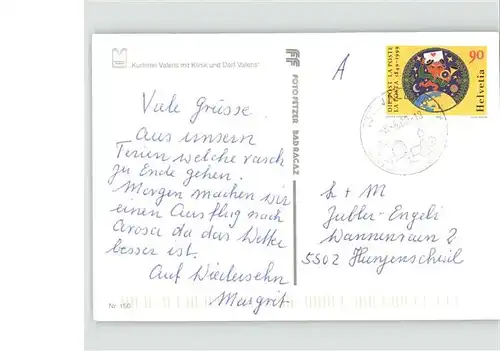 "Kurhotel Valens mit Klinik und Dorf Valens"
Viele Grüsse.
aus unsern
Ferien welche rasch
zu Ende gehen.
Morgen machen wir
einen Ausflug nach
Arosa da das Wetter
besser ist.
Auf Wiedersehn
Margrit
Nr. 150
FF FOTO FETZER BAD RAGAZ
A
DIE POST LA POSTE
LA POSTA 1849-1999
90
Helvetia
L + M
Jubler-Engeli
Wannenrain 2
5502 Hunzenschwil